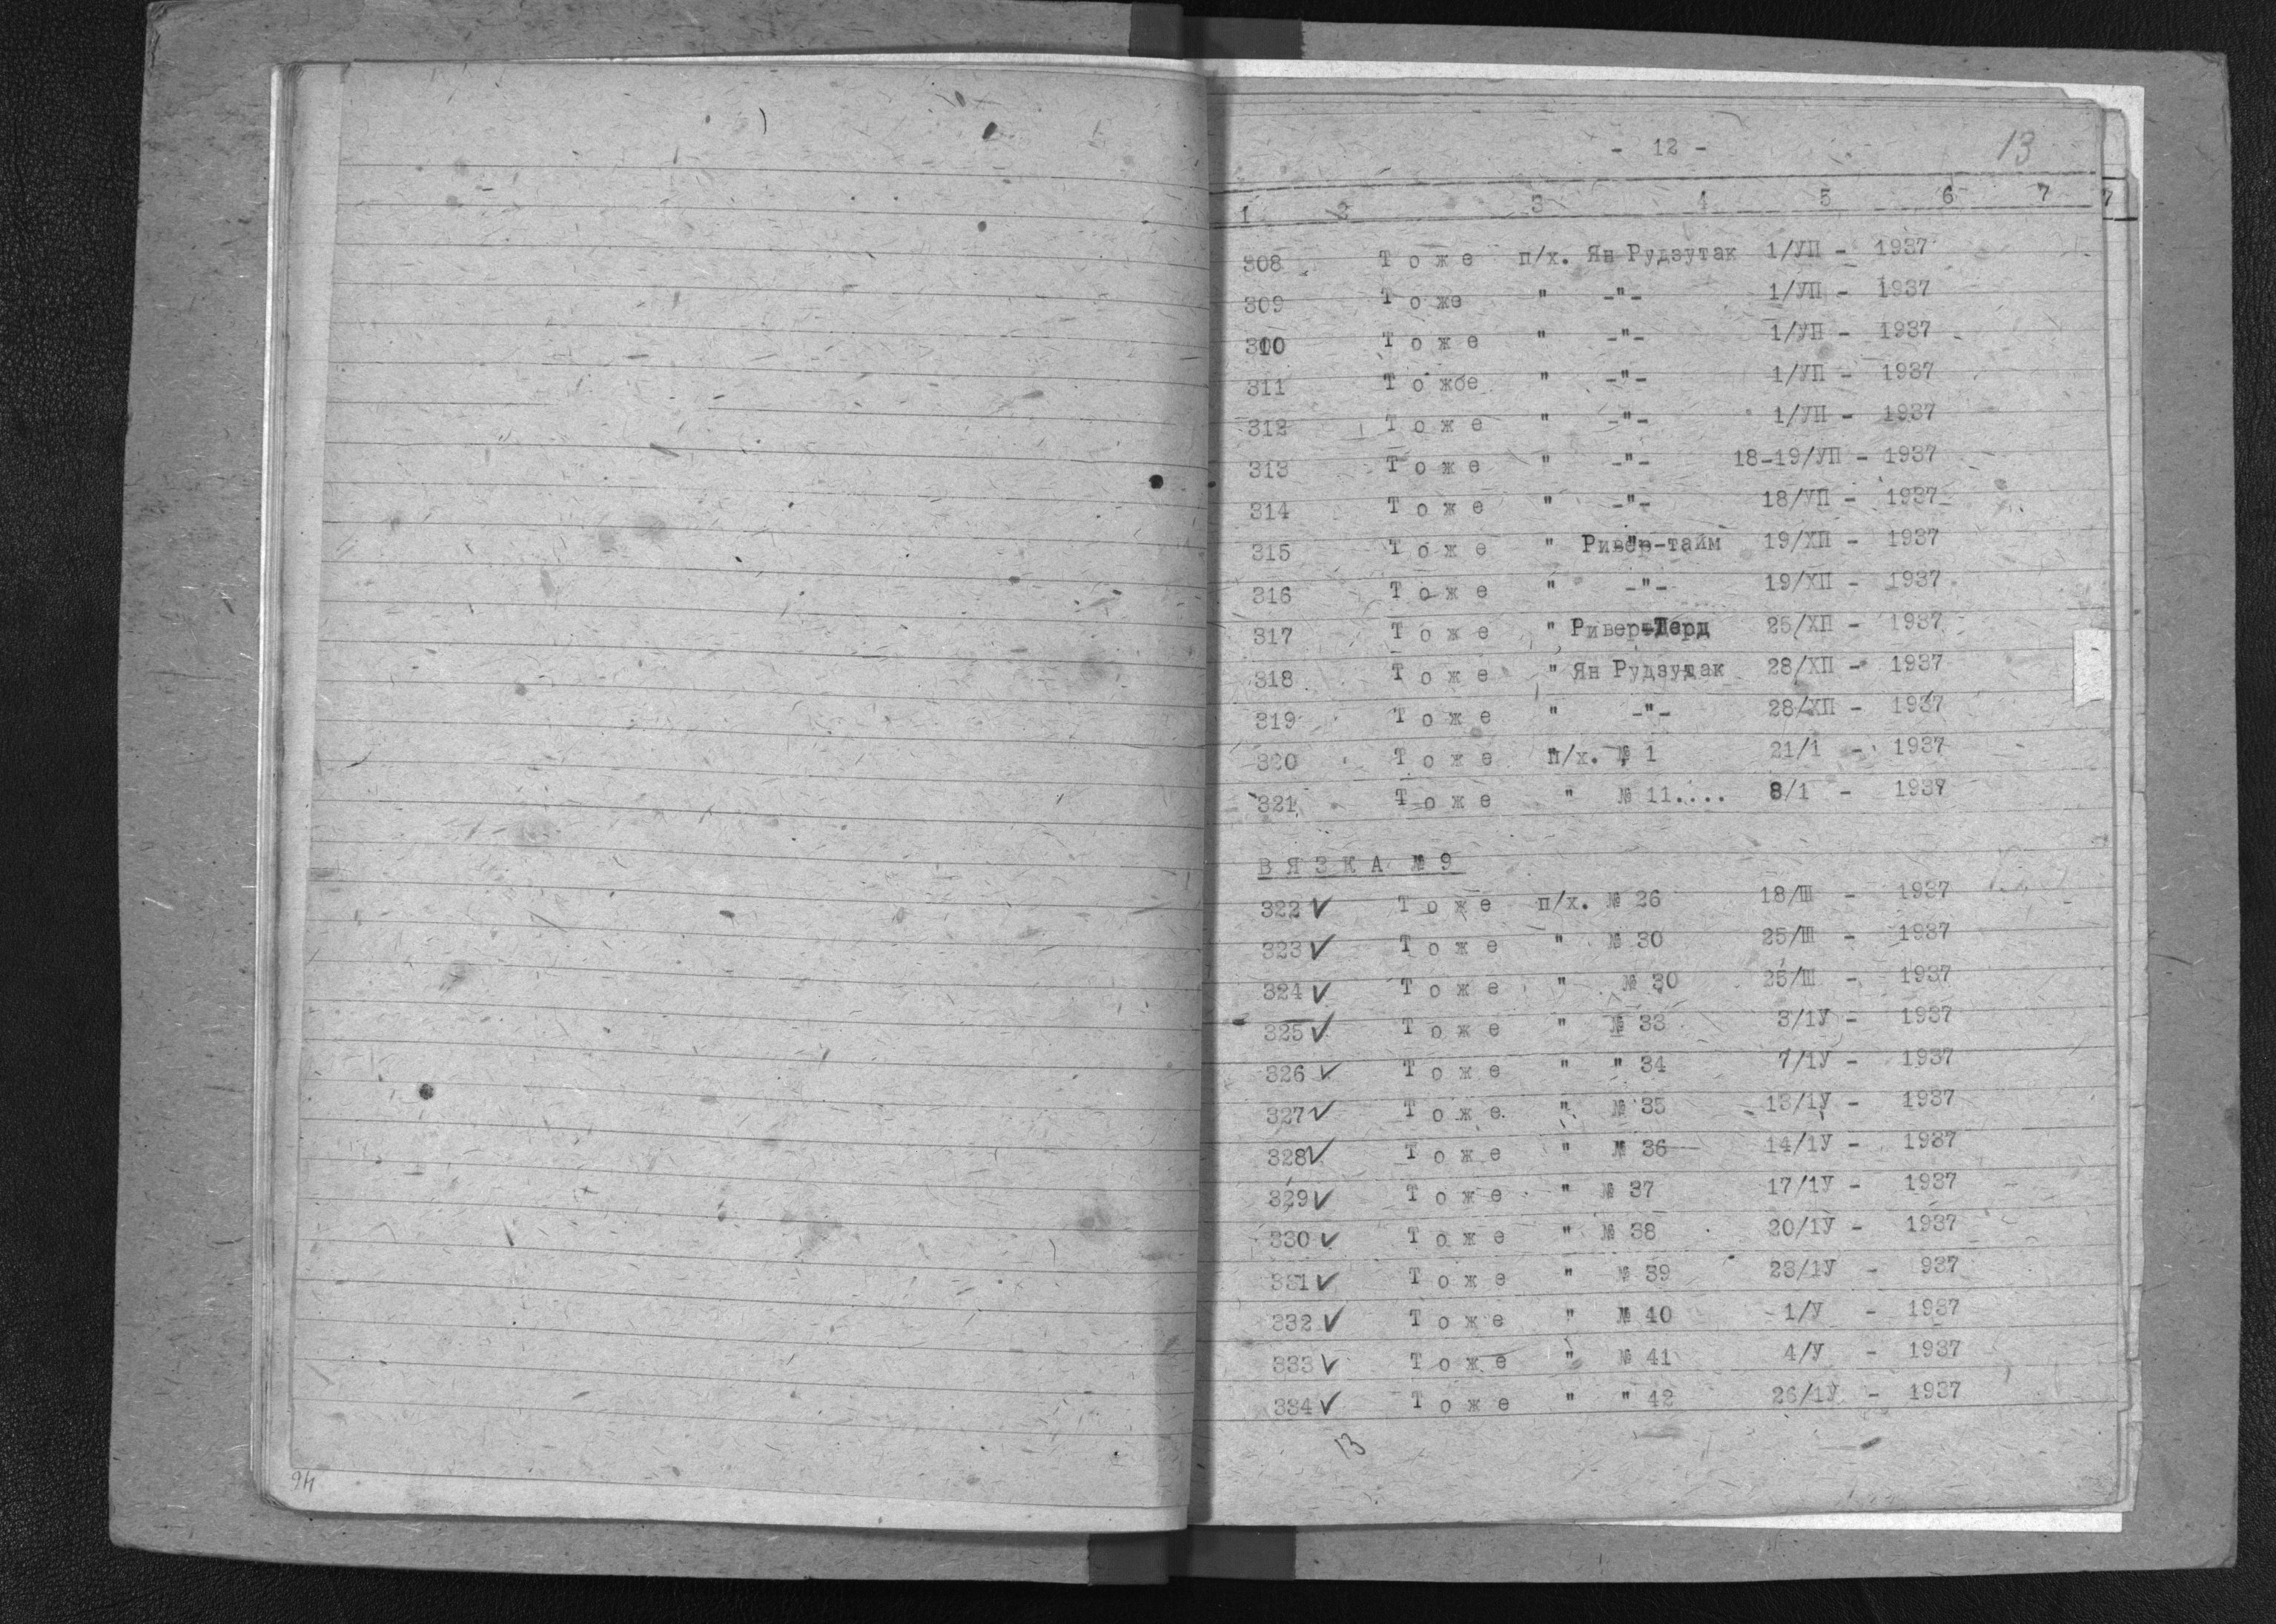 - 12 -
13
1 2 3 4 5 6 7
7
308 Т о ж е п/х. Ян Рудзутак 1/УП - 1937
309 Т о же " -"- 1/УП - 1937
310 Т о ж е " -"- 1/УП - 1937
311 Т о жбе " -"- 1/УП - 1937
312 Т о ж е " -"- 1/УП - 1937
313 Т о ж е " -"- 18-19/УП - 1937
314 Т о ж е " -"- 18/УП - 1937
315 Т о ж е " Ривер-тайм 19/ХП - 1937
316 Т о ж е " -"- 19/ХП - 1937
317 Т о ж е " 25/ХП - 1937
318 Т о ж е " Ян Рудзутак 28/ХП - 1937
319 Т о ж е " -"- 28/ХП - 1937
320 Т о ж е п/х. № 1 21/1 - 1937
321 Т о ж е " № 11.... 8/1 - 1937
В Я З К А № 9
322 ✓ Т о ж е п/х. № 26 18/Ш - 1937
323 ✓ Т о ж е " № 30 25/Ш - 1937
324 ✓ Т о ж е " № 30 25/Ш - 1937
325 ✓ Т о ж е " № 33 3/1У - 1937
326 ✓ Т о ж е " " 34 7/1У - 1937
327 ✓ Т о ж е " № 35 13/1У - 1937
328 ✓ Т о ж е " № 36 14/1У - 1937
329 ✓ Т о ж е " № 37 17/1У - 1937
330 ✓ Т о ж е " № 38 20/1У - 1937
331 ✓ Т о ж е " № 39 23/1У - 937
332 ✓ Т о ж е " № 40 1/У - 1937
333 ✓ Т о ж е " № 41 4/У - 1937
334 ✓ Т о ж е " " 42 26/1У - 1937
13
94